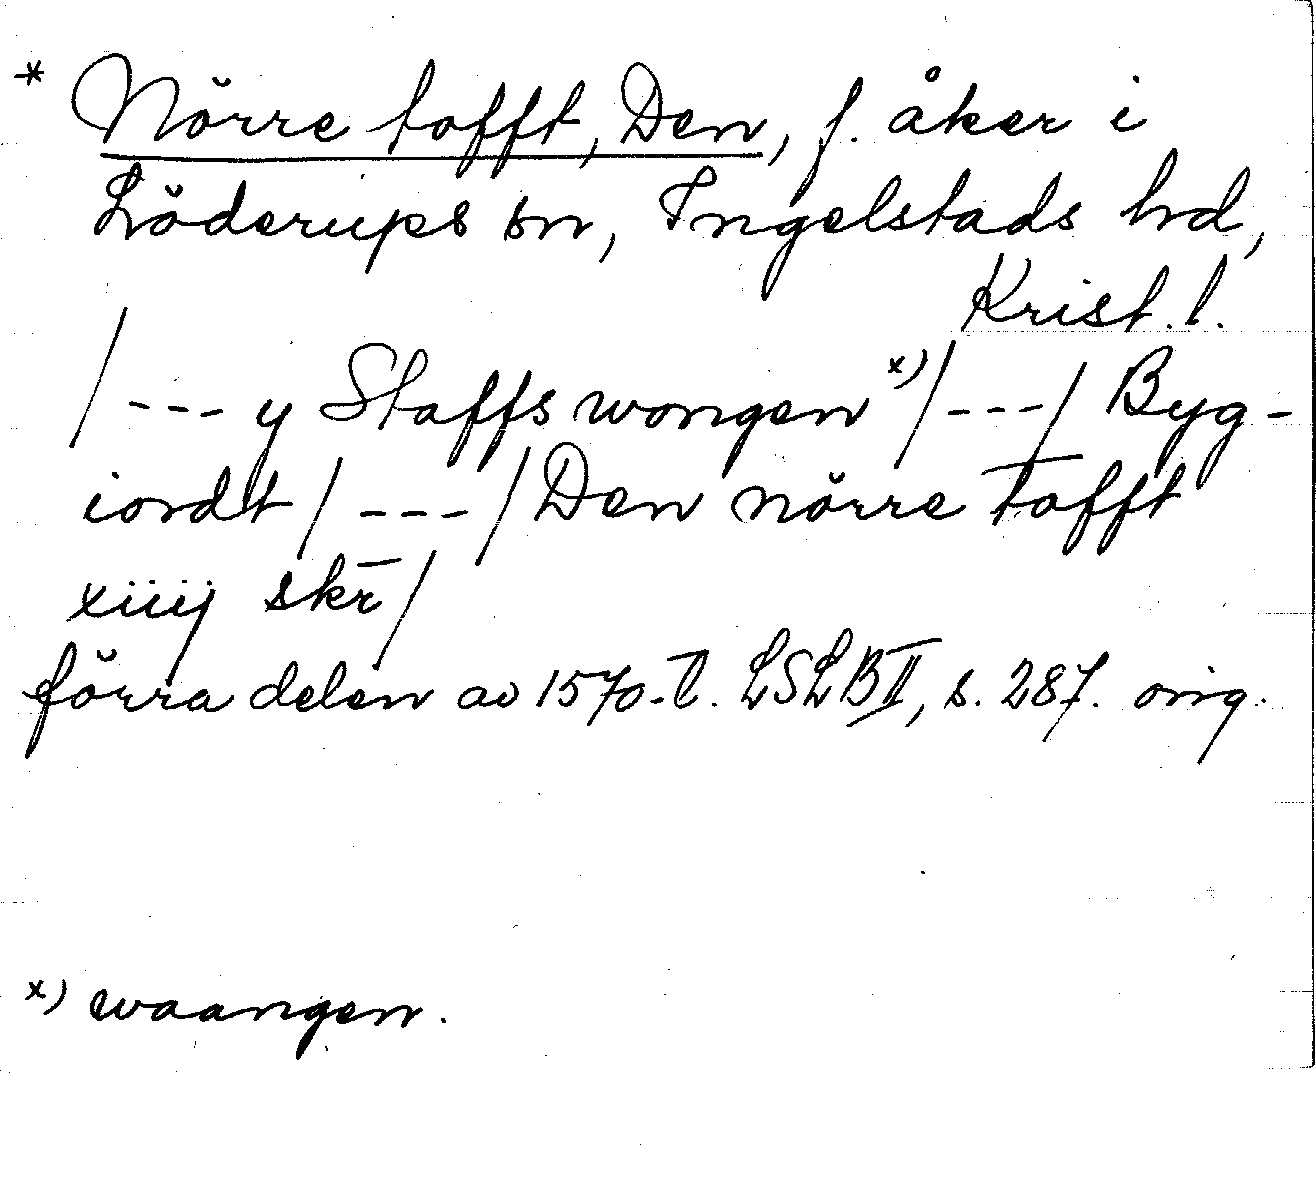 * Nörre tofft, Den, f. åker i
Löderups sn, Ingelstads hd,
Krist. l.
/--- y Staffs wongen x)/---/ Byg-
iordt/---/Den nörre tofft
xiiij skr̄/
förra delen av 1570-t. LSLB II, s. 287. orig.
x) waangen.